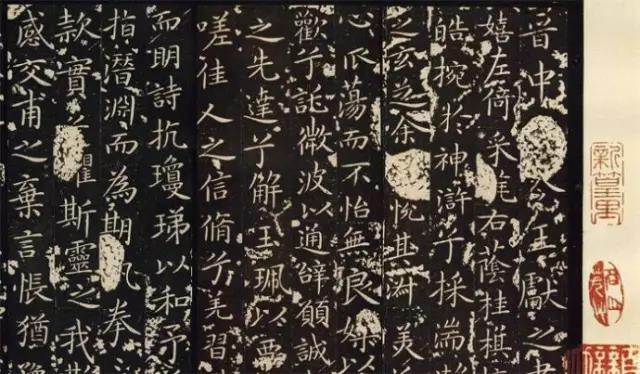 晉中王獻之書
嬉左倚采旄右蔭桂旗
皓捥於神滸兮採湍
之玄芝余悅其淑美
心蕩而不怡無良媒
歡兮託微波以通辭願誠
之先達兮解玉珮以要
嗟佳人之信脩兮羌習
而明詩抗瓊珶以和予
指潛淵而為期執拳
款實兮懼斯靈之我欺
感交甫之棄言悵猶豫